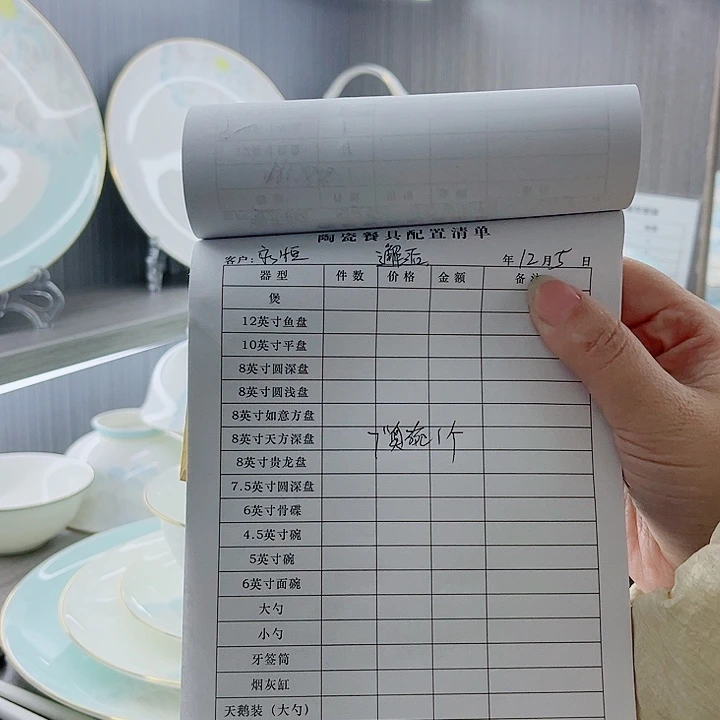 陶瓷餐具配置清单
客户: 永恒 邂逅 年12月5日
器型 件数 价格 金额 备注
煲
12英寸鱼盘
10英寸平盘
8英寸圆深盘
8英寸圆浅盘
8英寸如意方盘
8英寸天方深盘 碗1个
8英寸贵龙盘
7.5英寸圆深盘
6英寸骨碟
4.5英寸碗
5英寸碗
6英寸面碗
大勺
小勺
牙签筒
烟灰缸
天鹅装（大勺）